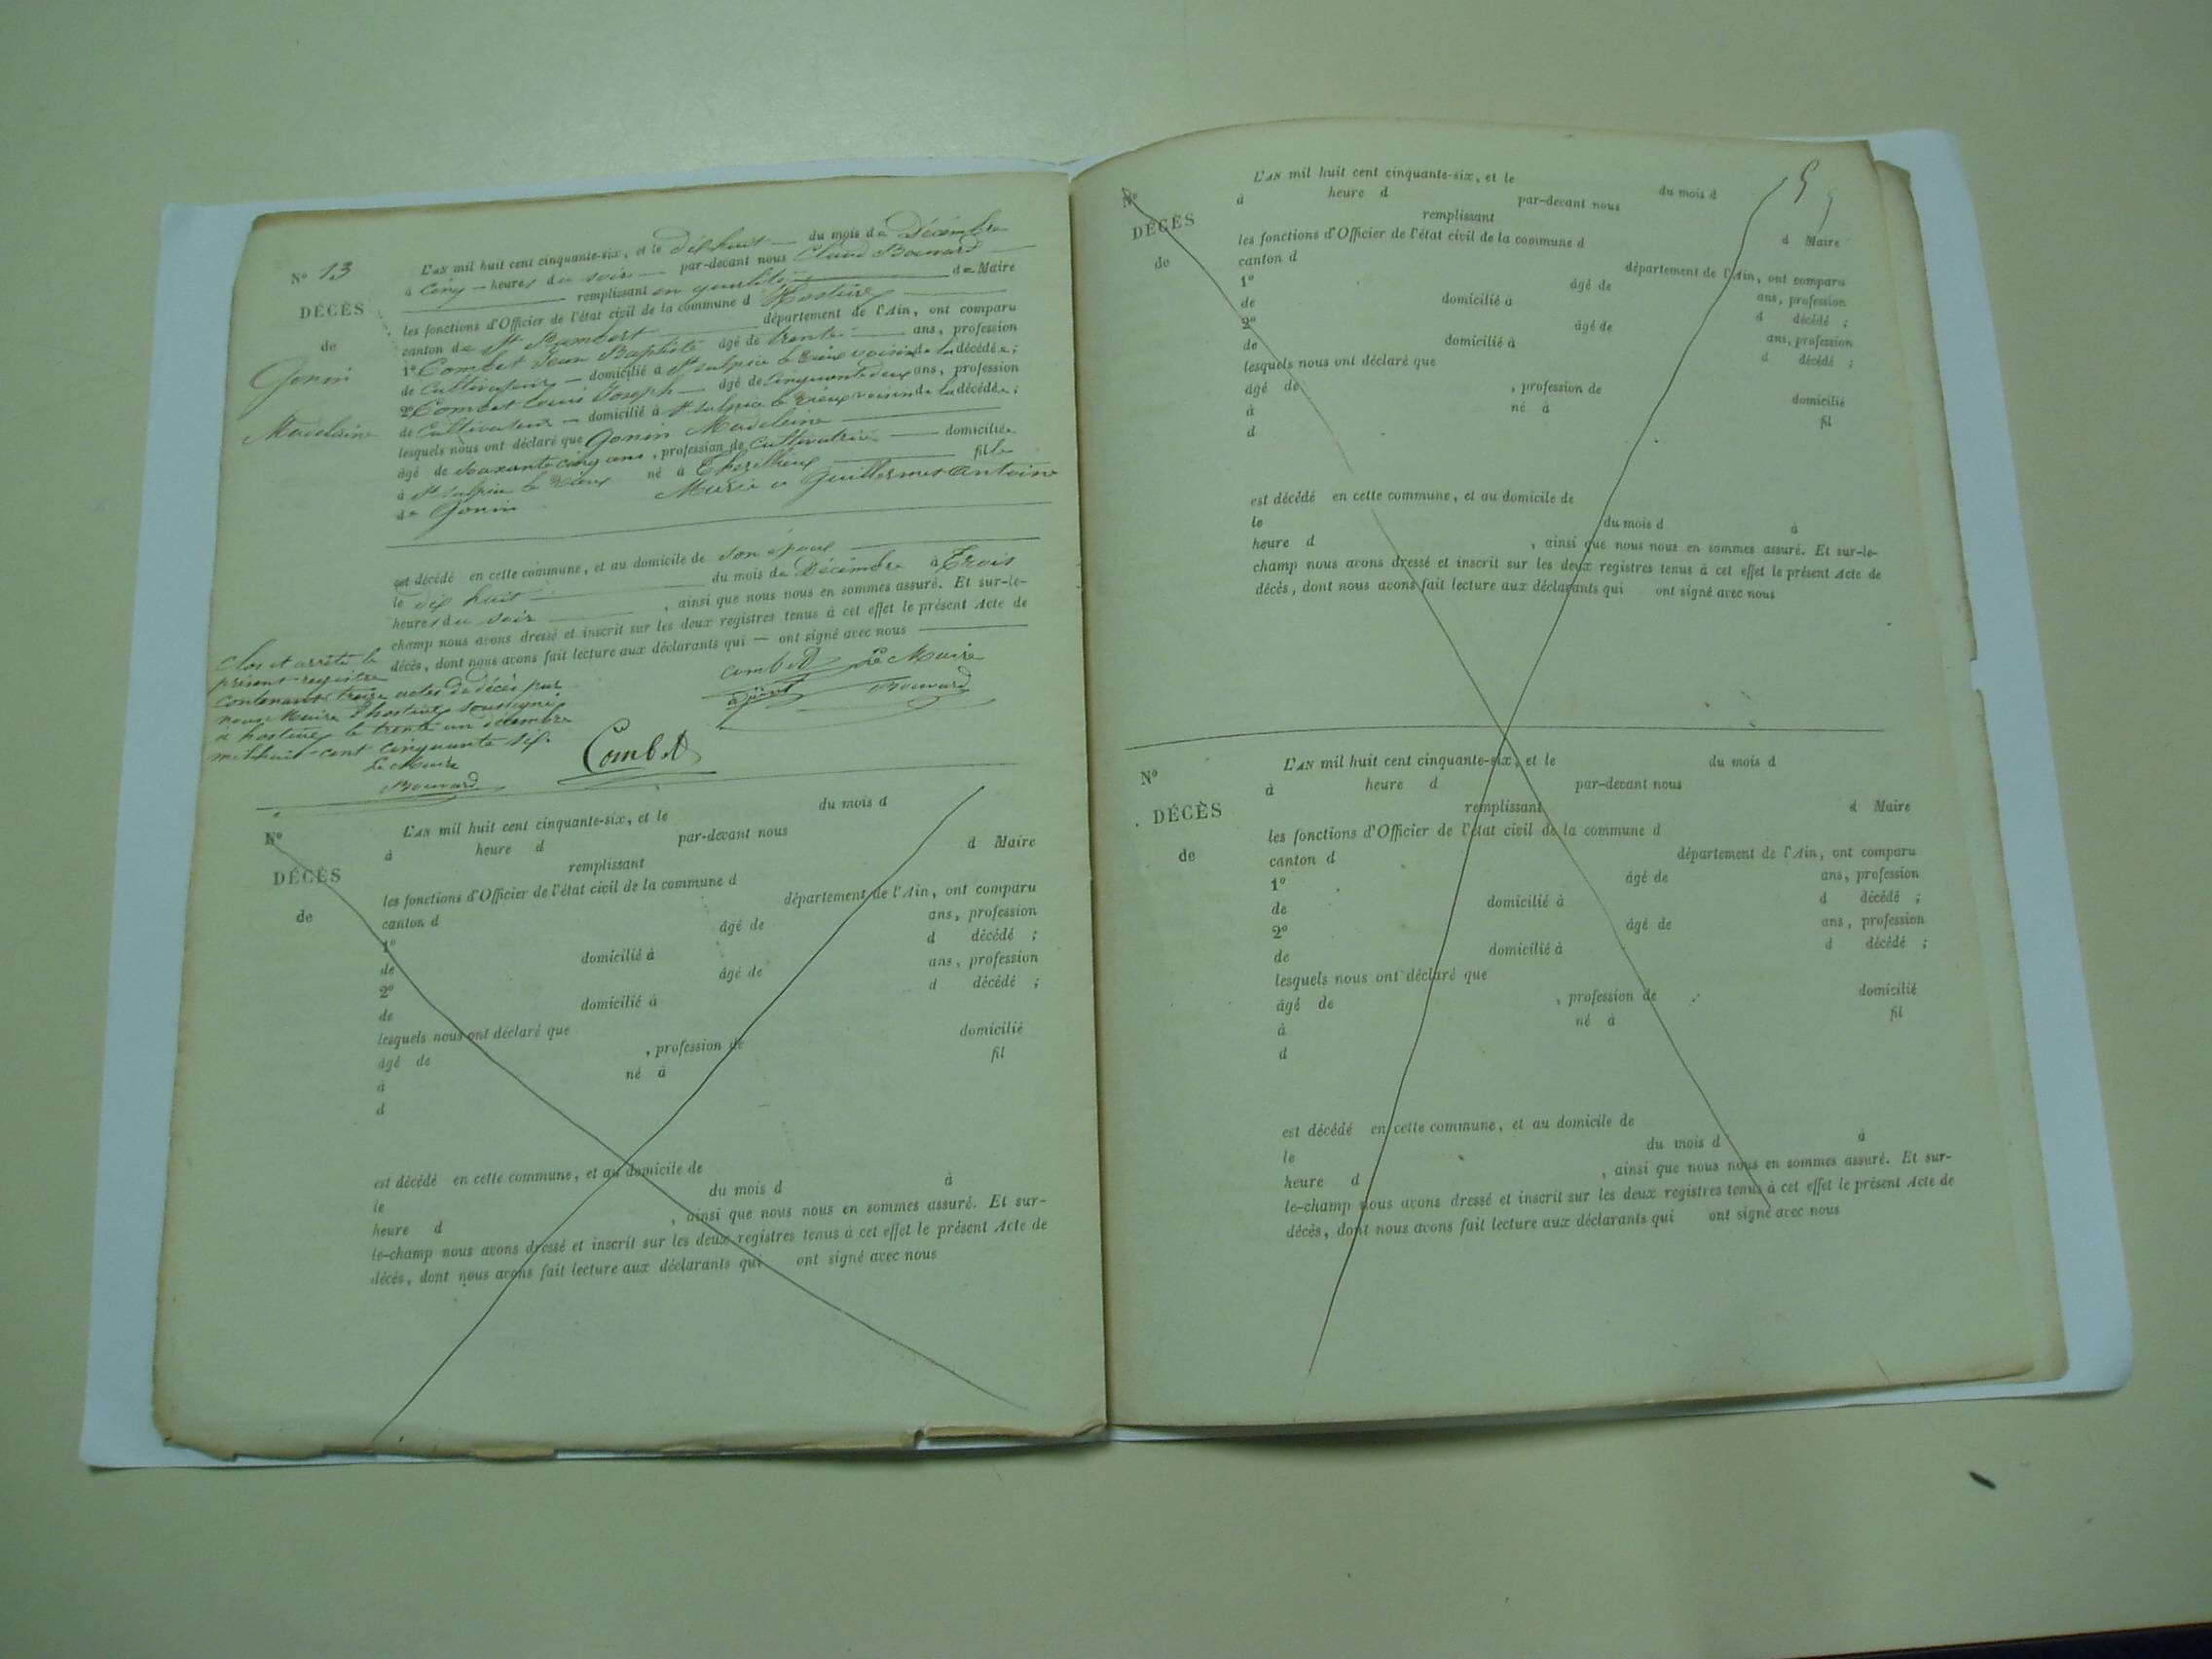 N° 13
DÉCÈS
de
Gonin
Madelaine
L'AN mil huit cent cinquante-six, et le dix huit du mois de Décembre
à cinq heures du soir par-devant nous Claude Bouvard
remplissant en qualité de Maire
les fonctions d'Officier de l'état civil de la commune d'hostiaz
canton de St Rambert département de l'Ain, ont comparu
1° Combet Jean Baptiste âgé de trente ans, profession
de Cultivateur domicilié à St Sulpice le Vieux voisin de la décédée;
2° Combet Louis Joseph âgé de cinquante deux ans, profession
de Cultivateur domicilié à St Sulpice le Vieux voisin de la décédée;
lesquels nous ont déclaré que Gonin Madeleine
âgé de soixante cinq ans, profession de Cultivatrice domiciliée
à St Sulpice le Vieux né à Thezillieu fille
de Gonin Marie et Guillermet Antoine
est décédé en cette commune, et au domicile de son époux
le dix huit du mois de Décembre à Trois
heures du soir, ainsi que nous nous en sommes assuré. Et sur-le-
champ nous avons dressé et inscrit sur les deux registres tenus à cet effet le présent Acte de
décès, dont nous avons fait lecture aux déclarants qui — ont signé avec nous
Combet Le Maire
Bouvard
Combet
Clos et arrêté le
présent registre
contenant treize actes de décès par
nous Maire d'hostiaz soussigné
à hostiaz le trente un décembre
mil huit-cent cinquante six.
Le Maire
Bouvard
N°
DÉCÈS
de
L'AN mil huit cent cinquante-six, et le du mois d
à heure d par-devant nous
remplissant d Maire
les fonctions d'Officier de l'état civil de la commune d
canton d département de l'Ain, ont comparu
1° âgé de ans, profession
de domicilié à d décédé ;
2° âgé de ans, profession
de domicilié à d décédé ;
lesquels nous ont déclaré que
âgé de , profession de domicilié
à né à fil
d
est décédé en cette commune, et au domicile de
le du mois d à
heure d , ainsi que nous nous en sommes assuré. Et sur-
le-champ nous avons dressé et inscrit sur les deux registres tenus à cet effet le présent Acte de
décès, dont nous avons fait lecture aux déclarants qui ont signé avec nous
N°
DÉCÈS
de
L'AN mil huit cent cinquante-six, et le du mois d
à heure d par-devant nous
remplissant d Maire
les fonctions d'Officier de l'état civil de la commune d
canton d département de l'Ain, ont comparu
1° âgé de ans, profession
de domicilié à d décédé ;
2° âgé de ans, profession
de domicilié à d décédé ;
lesquels nous ont déclaré que
âgé de , profession de domicilié
à né à fil
d
est décédé en cette commune, et au domicile de
le du mois d à
heure d , ainsi que nous nous en sommes assuré. Et sur-le-
champ nous avons dressé et inscrit sur les deux registres tenus à cet effet le présent Acte de
décès, dont nous avons fait lecture aux déclarants qui ont signé avec nous
N°
DÉCÈS
de
L'AN mil huit cent cinquante-six, et le du mois d
à heure d par-devant nous
remplissant d Maire
les fonctions d'Officier de l'état civil de la commune d
canton d département de l'Ain, ont comparu
1° âgé de ans, profession
de domicilié à d décédé ;
2° âgé de ans, profession
de domicilié à d décédé ;
lesquels nous ont déclaré que
âgé de , profession de domicilié
à né à fil
d
est décédé en cette commune, et au domicile de
le du mois d à
heure d , ainsi que nous nous en sommes assuré. Et sur-
le-champ nous avons dressé et inscrit sur les deux registres tenus à cet effet le présent Acte de
décès, dont nous avons fait lecture aux déclarants qui ont signé avec nous